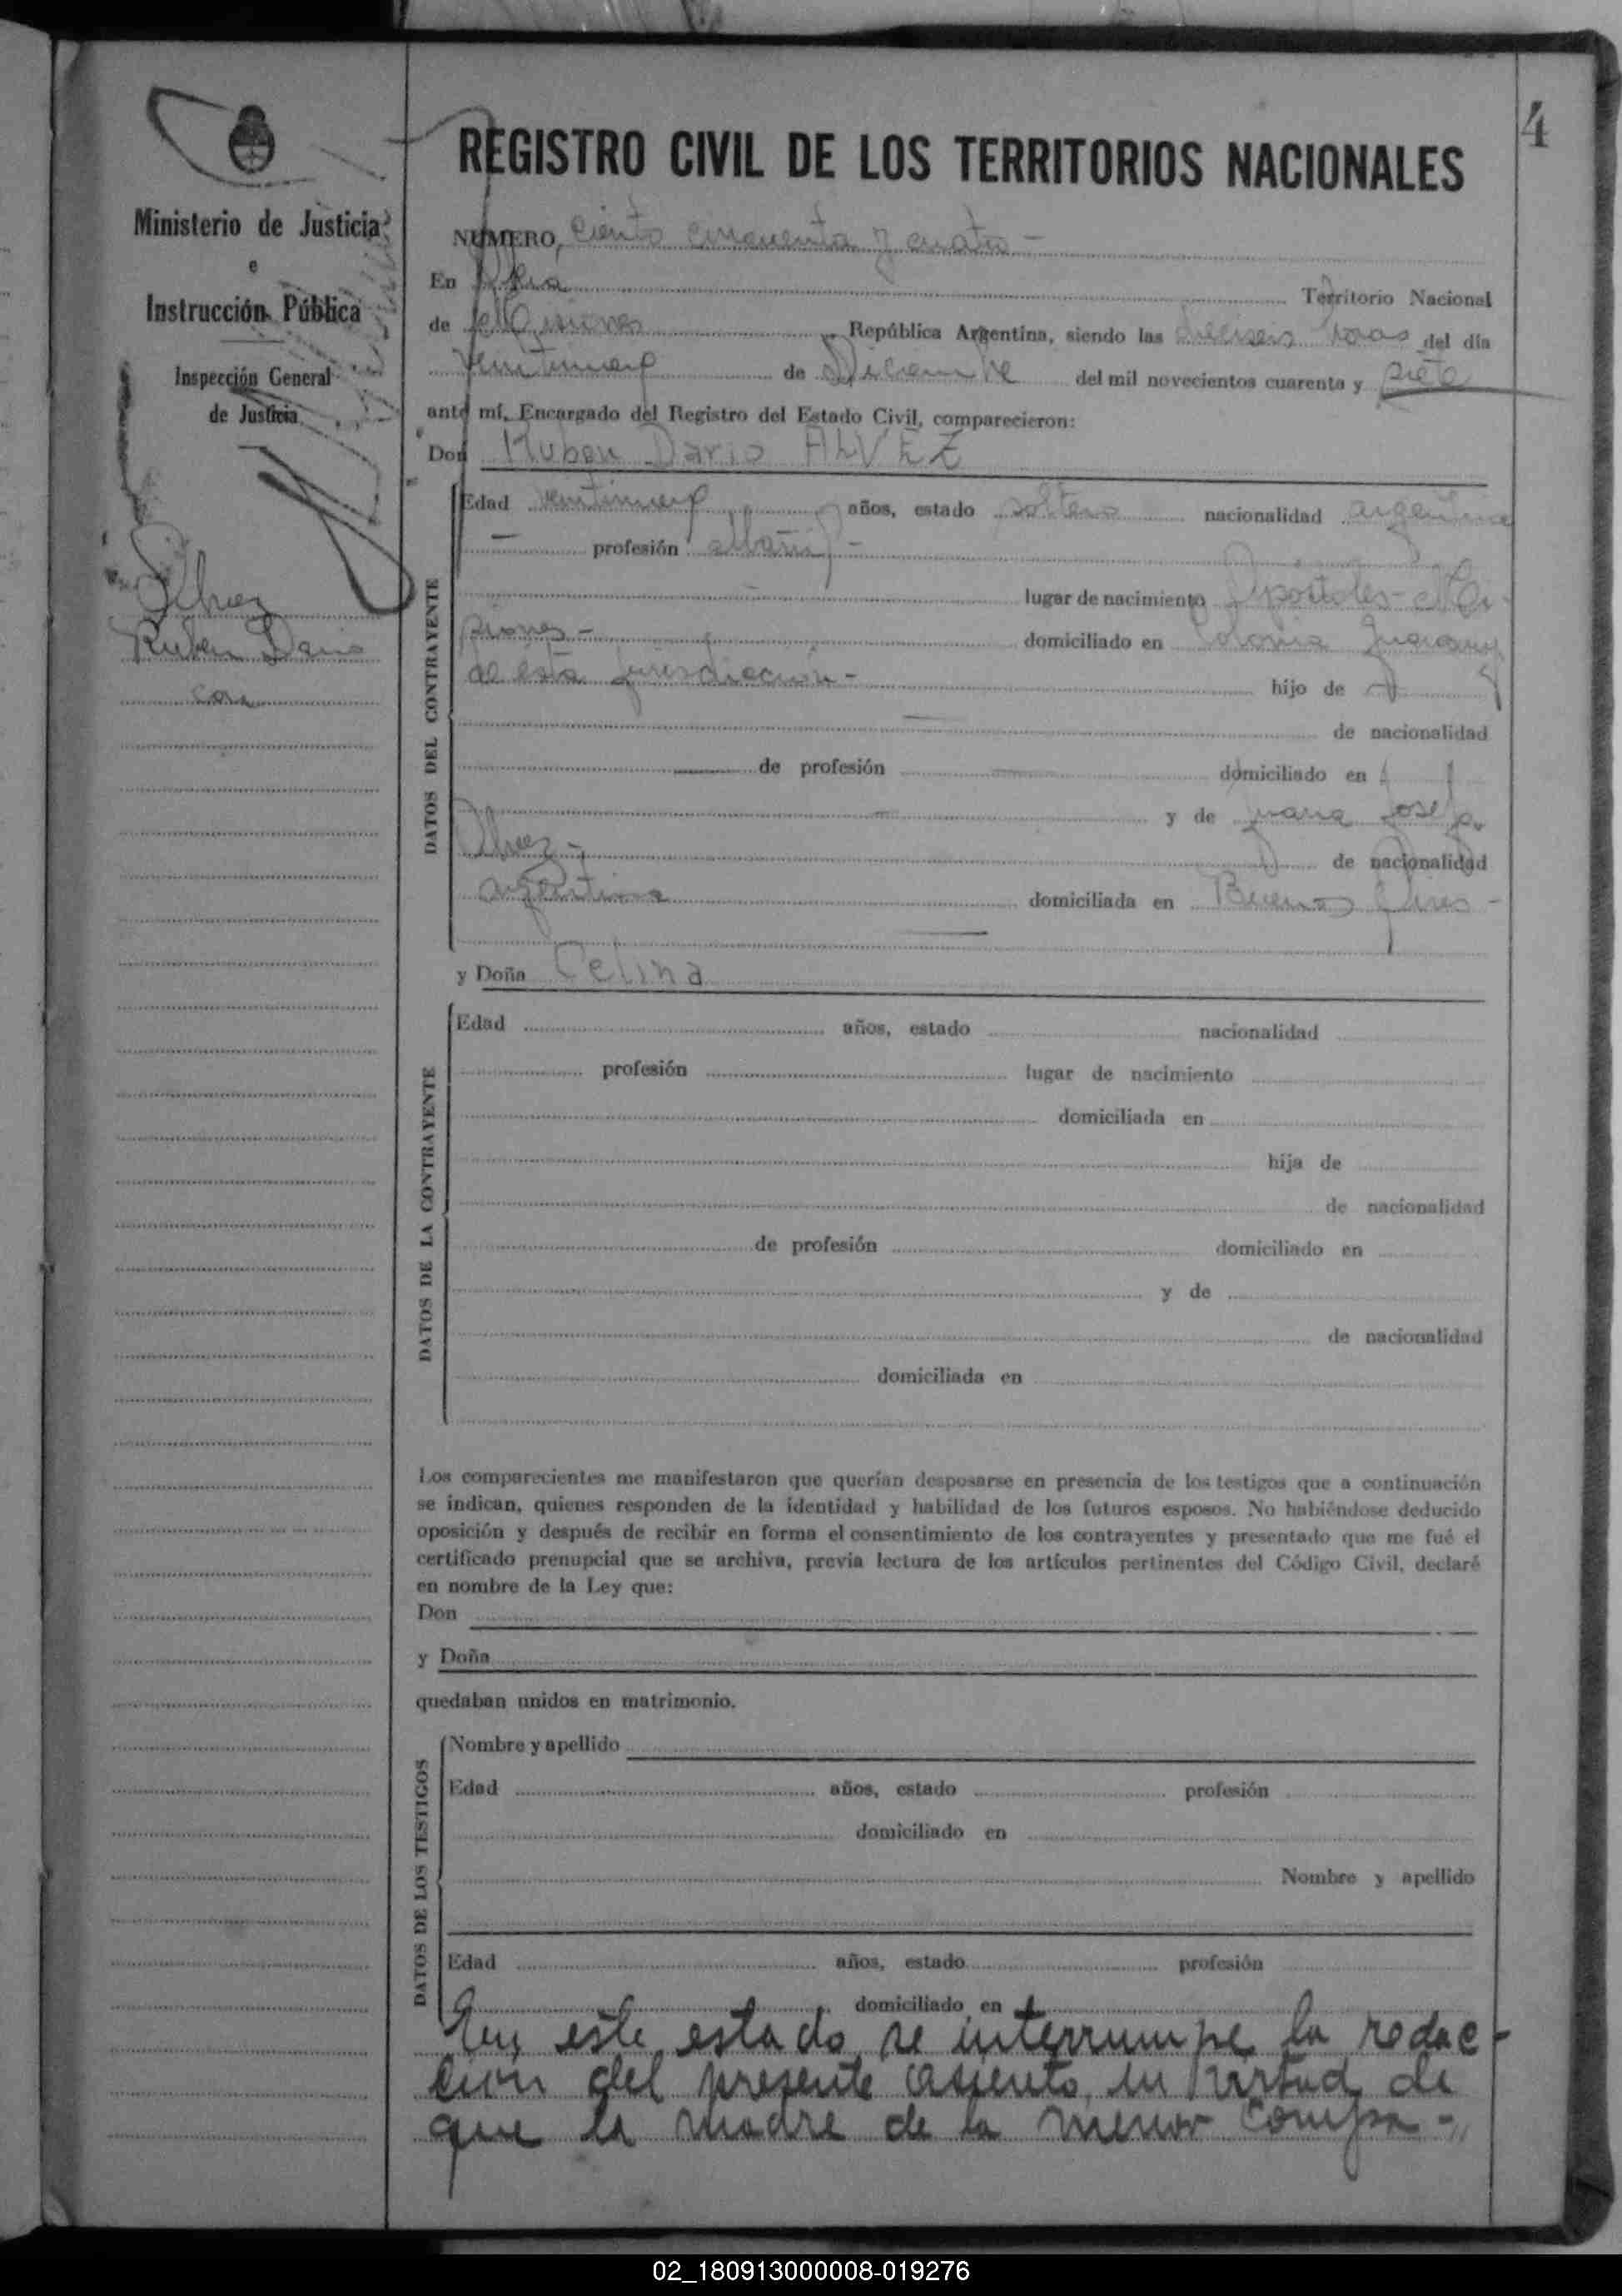 4
REGISTRO CIVIL DE LOS TERRITORIOS NACIONALES
Ministerio de Justicia
e
Instrucción Pública
Inspección General
de Justicia
Alvez
Ruben Dario
con
NUMERO, Ciento cincuenta y cuatro -
En Territorio Nacional
de Misiones República Argentina, siendo las dieciseis horas del día
ventinueve de Diciembre del mil novecientos cuarenta y siete
ante mí, Encargado del Registro del Estado Civil, comparecieron:
Don Ruben Dario ALVEZ
Edad ventinueve años, estado soltero nacionalidad argentina
- profesión albañil -
lugar de nacimiento Apostoles - Mi-
siones - domiciliado en Colonia Guarany
de esta jurisdicción - hijo de
de nacionalidad
de profesión domiciliado en
y de Juana Josefa
Alvez - de nacionalidad
argentina domiciliada en Buenos Aires -
y Doña Celina
DATOS DEL CONTRAYENTE
Edad años, estado nacionalidad
profesión lugar de nacimiento
domiciliada en
hija de
de nacionalidad
de profesión domiciliado en
y de
de nacionalidad
domiciliada en
DATOS DE LA CONTRAYENTE
Los comparecientes me manifestaron que querían desposarse en presencia de los testigos que a continuación
se indican, quienes responden de la identidad y habilidad de los futuros esposos. No habiéndose deducido
oposición y después de recibir en forma el consentimiento de los contrayentes y presentado que me fué el
certificado prenupcial que se archiva, previa lectura de los artículos pertinentes del Código Civil, declaré
en nombre de la Ley que:
Don
y Doña
quedaban unidos en matrimonio.
Nombre y apellido
Edad años, estado profesión
domiciliado en
Nombre y apellido
Edad años, estado profesión
domiciliado en
DATOS DE LOS TESTIGOS
En este estado se interrumpe la redac-
ción del presente asiento, en virtud de
que la madre de la menor compa-
02_180913000008-019276